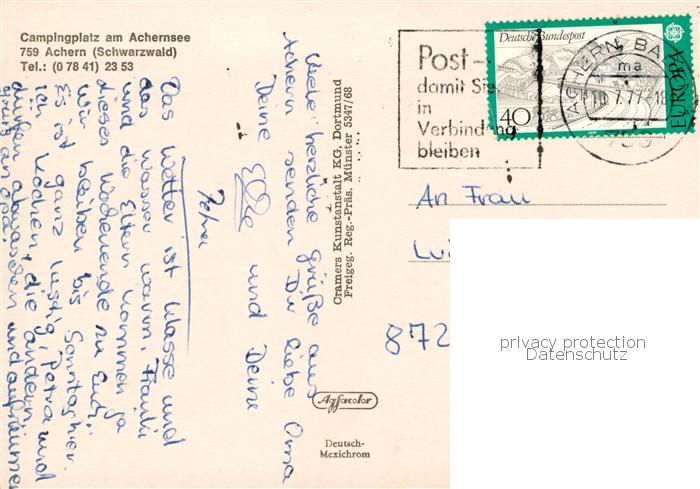 Campingplatz am Achernsee
759 Achern (Schwarzwald)
Tel.: (0 78 41) 23 53
Viele herzliche Grüße aus
Achern senden Dir liebe Oma
Deine Elke und Deine
Petra
Das Wetter ist klasse und
das Wasser warm.
und die Eltern kommen ja
dieses Wochenende zu Euch.
Wir bleiben bis Sonntag hier.
Es ist ganz lustig, Petra und
ich kochen, die andern
dürfen abwaschen und aufräumen
Gruß an Opa!
Cramers Kunstanstalt KG, Dortmund
Freigeg. Reg.-Präs. Münster 5347/68
Agfacolor
Deutsch-
Mexichrom
Post-
damit Sie
in
Verbindung
bleiben
Deutsche Bundespost
40
EUROPA
ACHERN, BA
ma
7.77-18
759
An Frau
872
privacy protection
Datenschutz